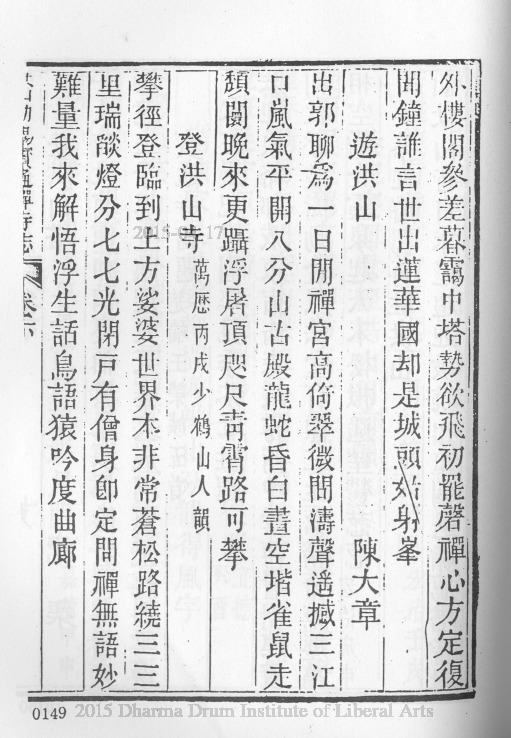 外樓閣參差暮靄中塔勢欲飛初罷磬禪心方定復
聞鐘誰言世出蓮華國却是城頭姑射峯
遊洪山　陳大章
出郭聊爲一日閒禪宮高倚翠微間濤聲遥撼三江
口嵐氣平開八分山古殿龍蛇昏白晝空堦雀鼠走
頽闤晚來更躡浮屠頂咫尺靑霄路可攀
登洪山寺 萬歴丙戌少鶴山人韻
攀徑登臨到上方娑婆世界本非常蒼松路繞三三
里瑞燄燈分七七光閉戸有僧身卽定問禪無語妙
難量我來解悟浮生話鳥語猿吟度曲廊
寶通禪寺志 卷六
2015-03-17
0149 2015 Dharma Drum Institute of Liberal Arts